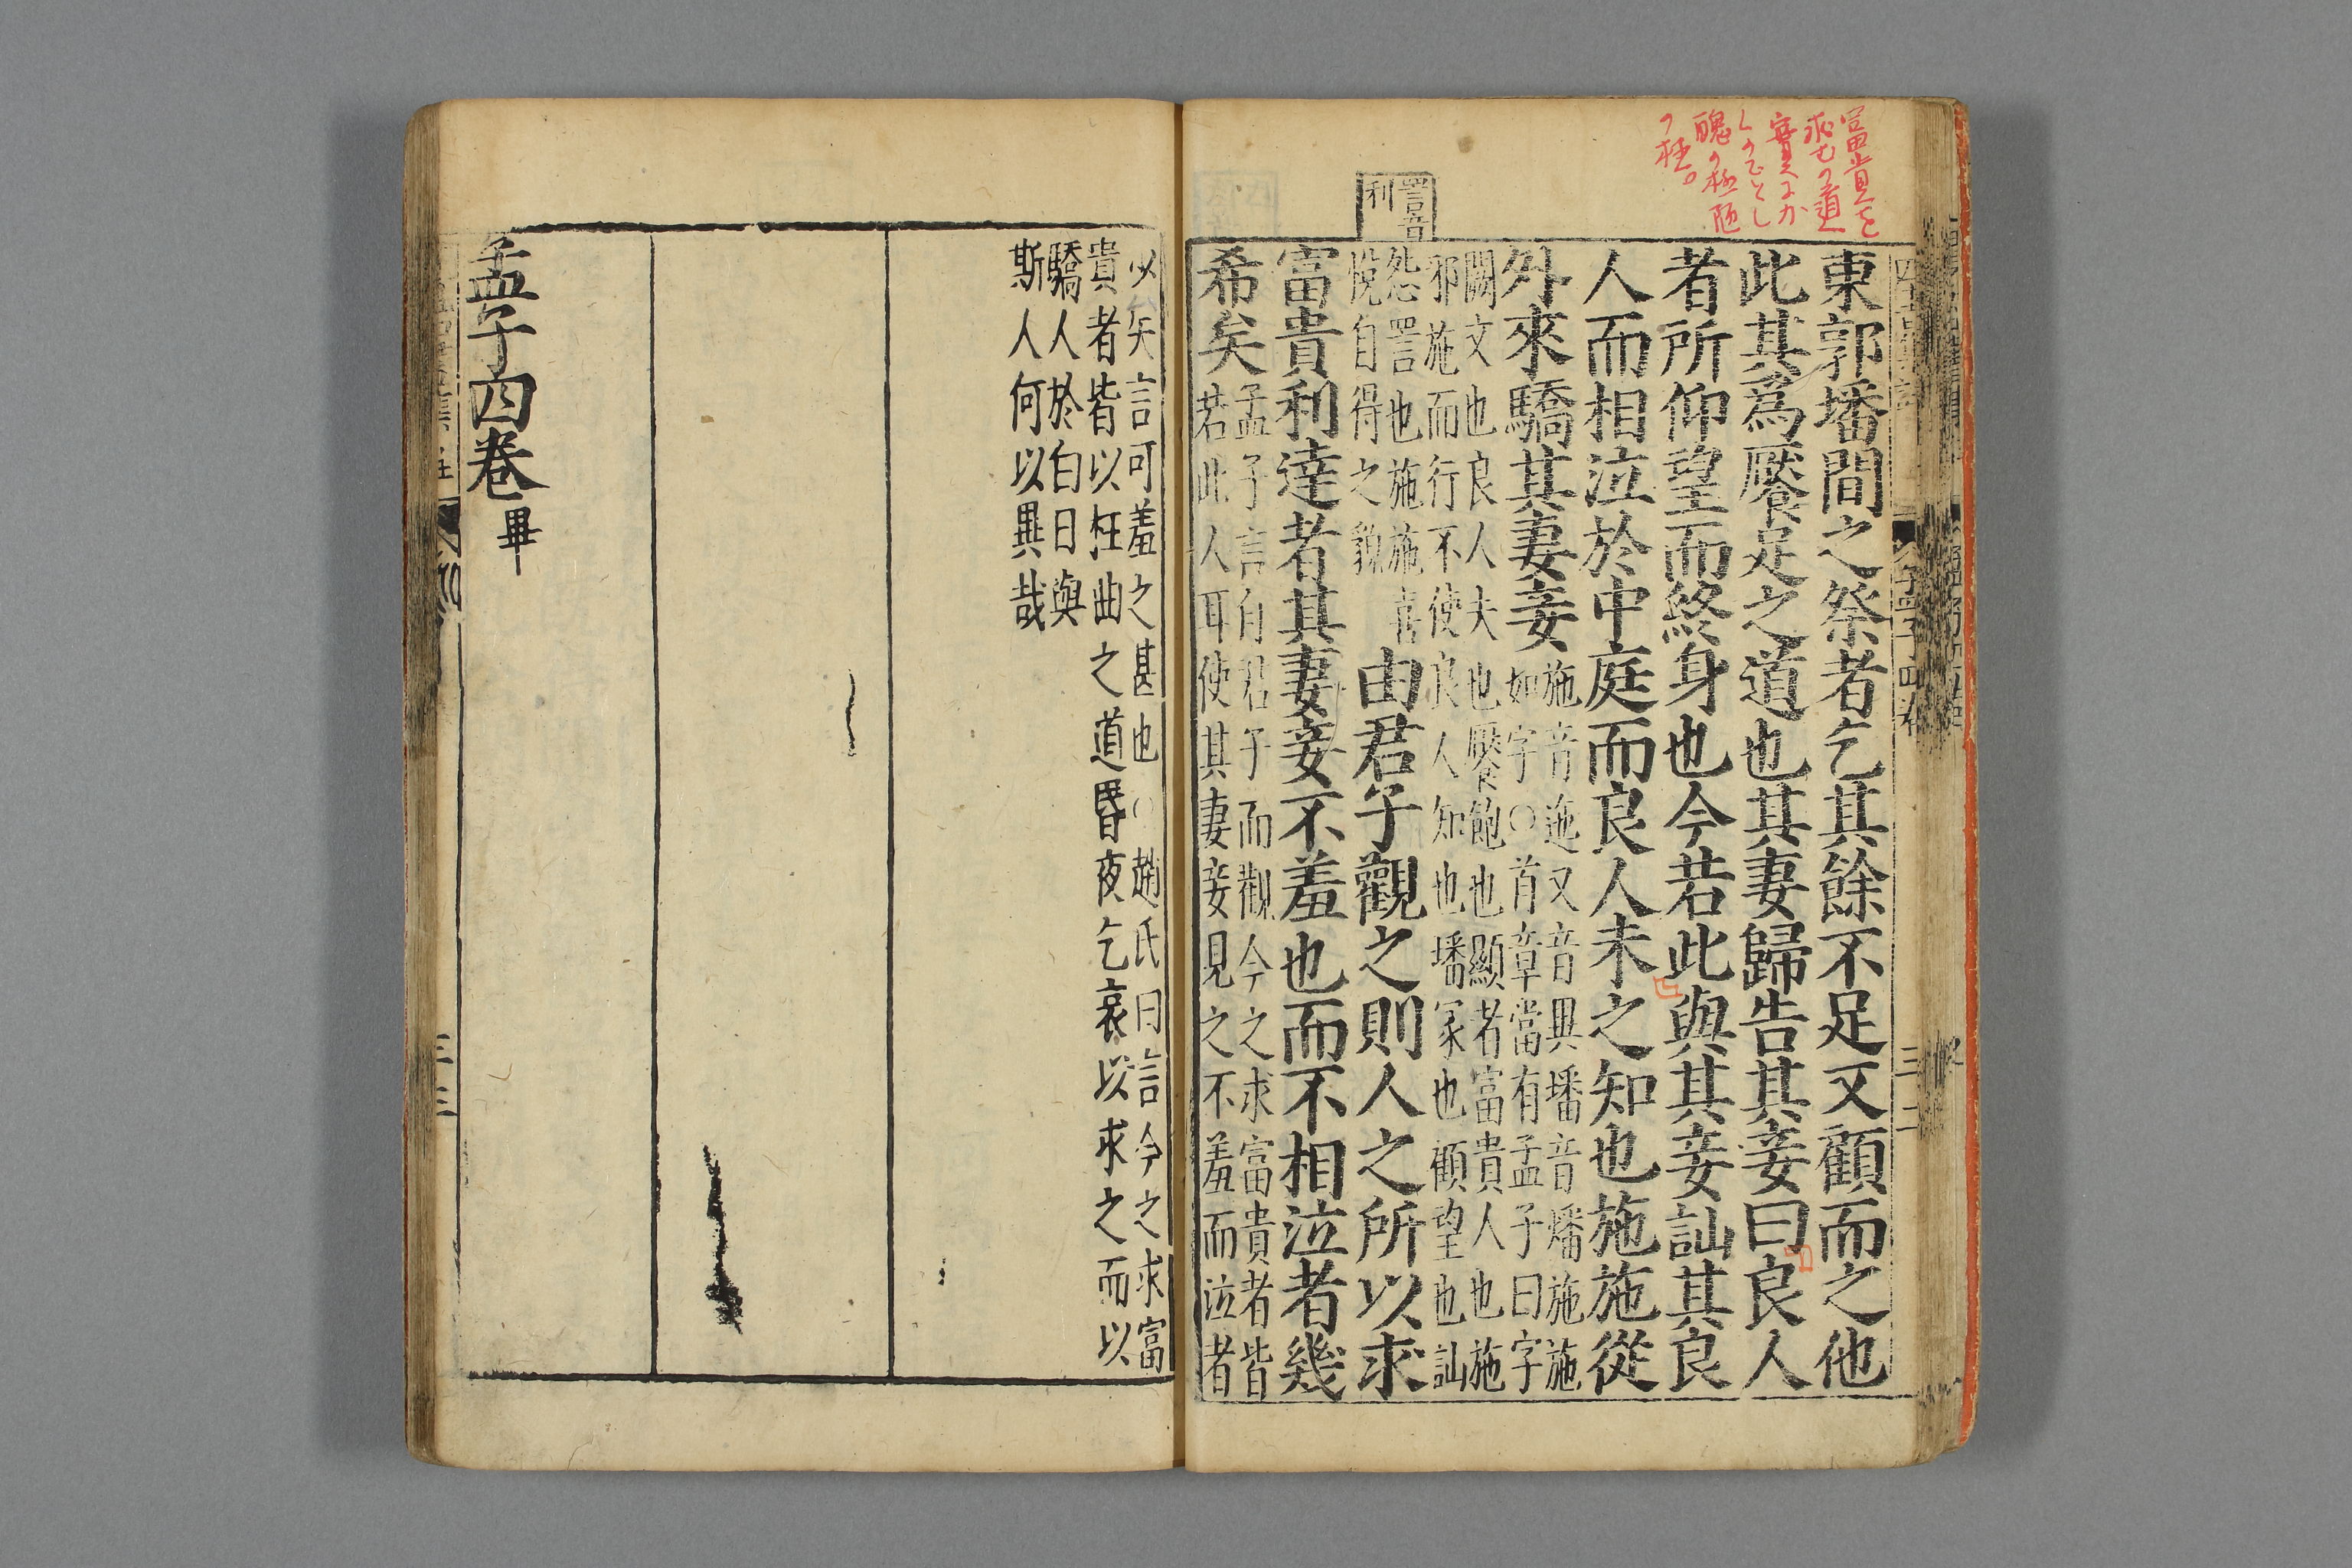 東郭墦間之祭者乞其餘不足又顧而之他
此其爲饜足之道也其妻歸告其妾曰良人
者所仰望而終身也今若此與其妾訕其良
人而相泣於中庭而良人未之知也施施從
外來驕其妻妾
施音迤又音異墦音燔施施
如字○首章當有孟子曰字
闕文也良人夫也饜飽也顯者富貴人也施
邪施而行不使良人知也墦冢也顧望也訕
怨詈也施施喜
悅自得之貌
由君子觀之則人之所以求
富貴利達者其妻妾不羞也而不相泣者幾
希矣
孟子言自君子而觀今之求富貴者皆
若此人耳使其妻妾見之不羞而泣者
詈音
利
少矣言可羞之甚也○趙氏曰言今之求富
貴者皆以枉曲之道昏夜乞哀以求之而以
驕人於白日與
斯人何以異哉
孟子四卷畢
三三